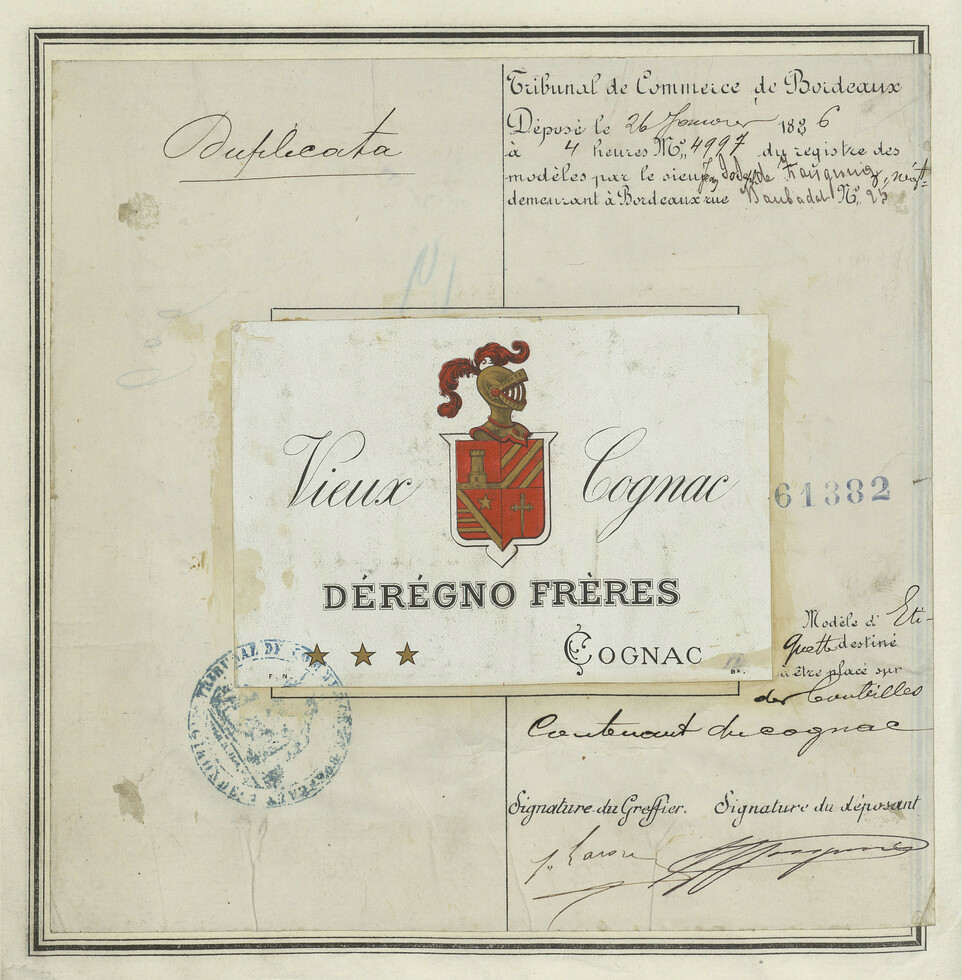 Duplicata
Tribunal de Commerce de Bordeaux
Déposé le 26 Janvier 1886
à 4 heures No. 4997 du registre des
modèles par le sieur
demeurant à Bordeaux rue No. 25
Vieux Cognac
61382
DÉRÉGNO FRÈRES
COGNAC
F. N.
Modèle d' Eti-
quette destiné
à être placé sur
des bouteilles
Contenant du cognac
Signature du Greffier. Signature du déposant
TRIBUNAL DE COMMERCE